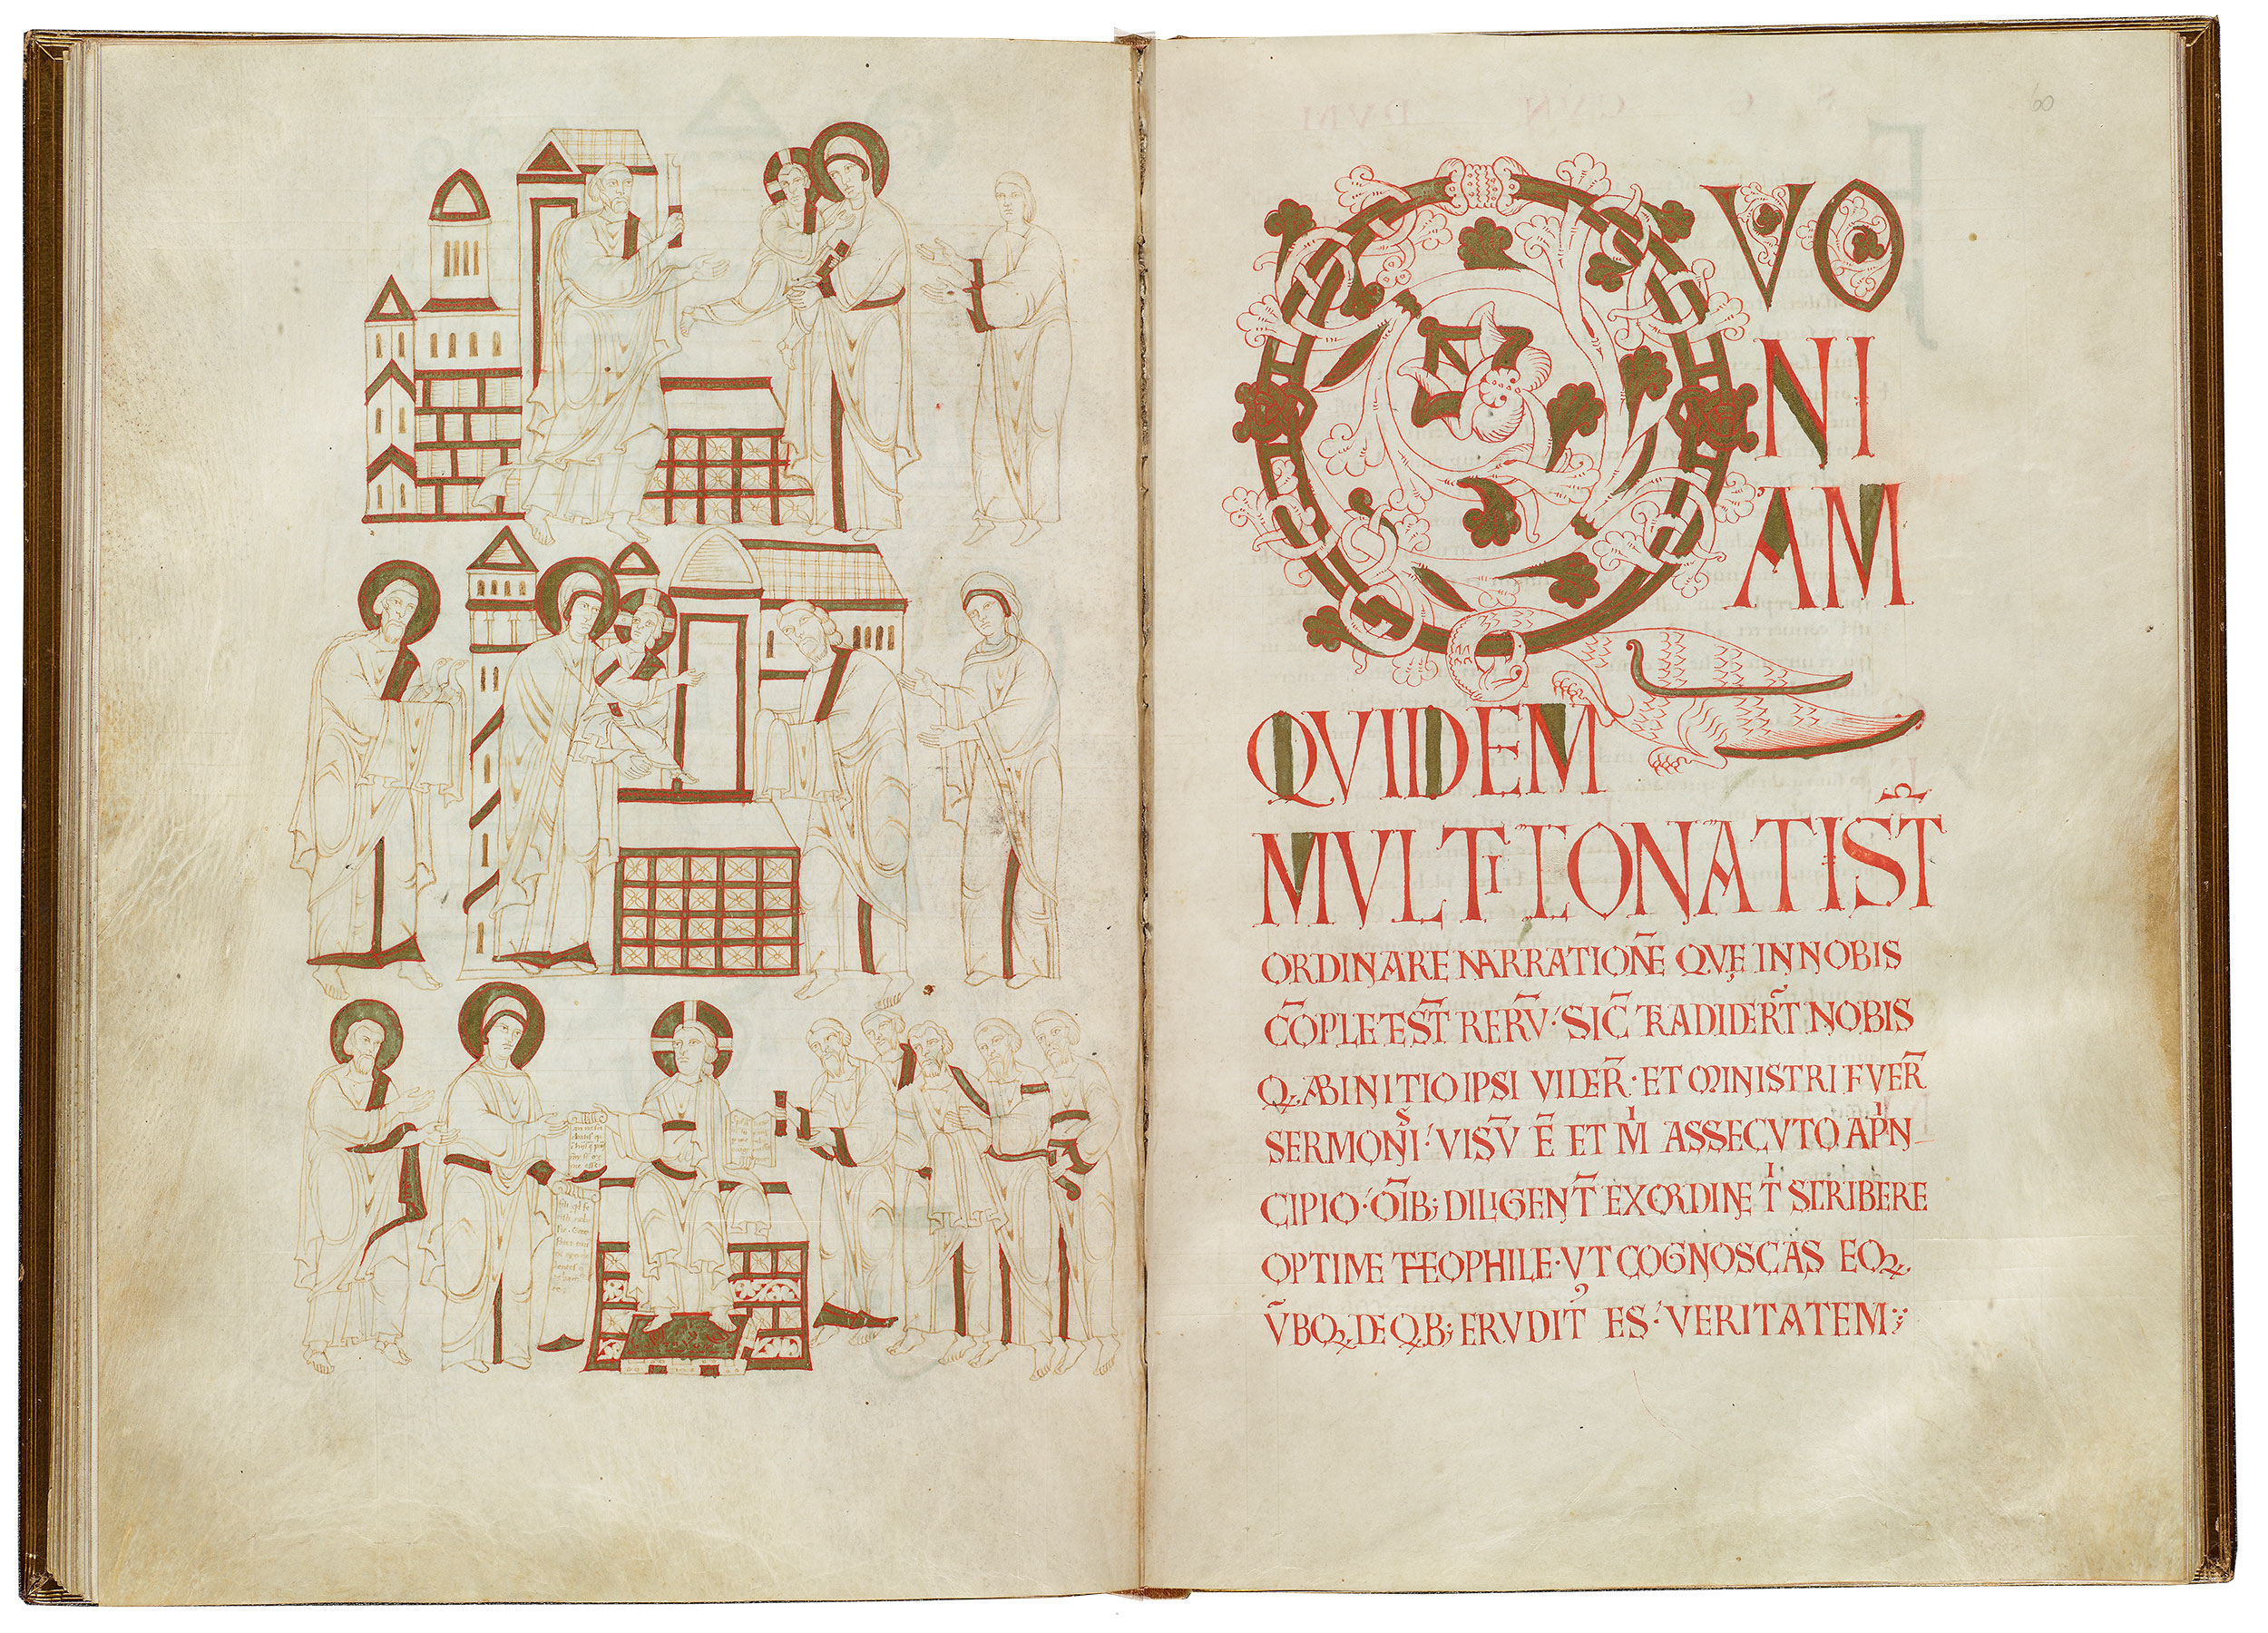 60
QVO
NI
AM
QVIDEM
MVLTI CONATI ST̄
ORDINARE NARRATIONĒ QVĘ IN NOBIS
C̄OPLETE ST̄ RERV̄· SIC̄ TRADIDER̄T NOBIS
Q, AB INITIO IPSI VIDER̄· ET MINISTRI FVER̄
SERMONIS· VISV̄ Ē ET M ASSECVTO A PN
CIPIO· ŌIB; DILIGENT̄ EX ORDINE T SCRIBERE
OPTIME THEOPHILE· VT COGNOSCAS EOQ,
V̄BOQ, DE Q,B; ERVDIT᾿ ES· VERITATEM